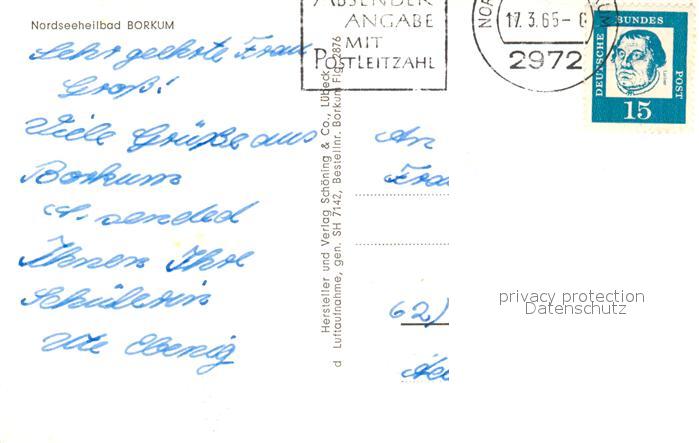 Nordseeheilbad BORKUM
Sehr geehrte Frau
Groß!
Viele Grüße aus
Borkum
sendet
Ihnen Ihre
Schülerin
Ute
Hersteller und Verlag Schöning & Co., Lübeck
Luftaufnahme, gen. SH 7142, Bestellnr. Borkum Flg. 9876
d
ABSENDER
ANGABE
MIT
POSTLEITZAHL
17.3.65-
2972
DEUTSCHE BUNDES POST
Luther
15
An
Frau
62)
privacy protection
Datenschutz